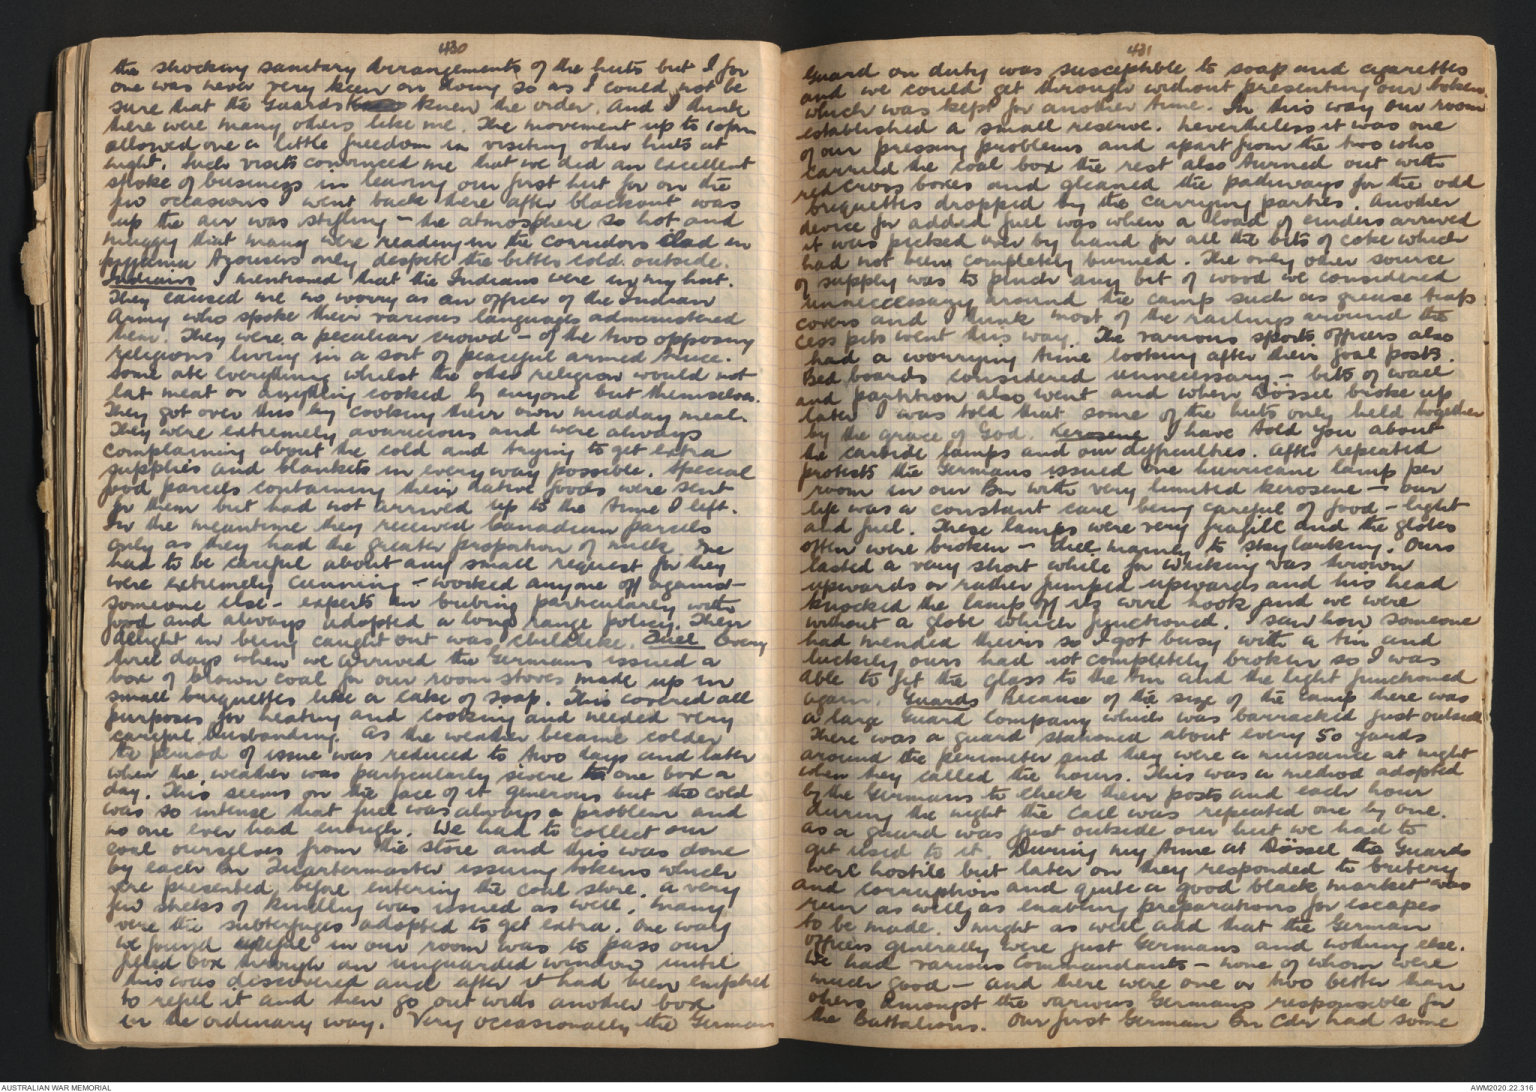 430
the shocking sanitary arrangements of the huts but I for
one was never very keen on doing so as I could not be
sure that the Guards knew the order. And I think
there were many others like me. The movement up to 10pm
allowed one a little freedom in visiting other huts at
night. Such visits convinced me that we did an excellent
stroke of business in leaving our first hut for on the
few occasions I went back there after blackout was
up the air was stifling - the atmosphere so hot and
muggy that many were reading in the corridors clad in
pyjama trousers only despite the bitter cold outside.
Indians I mentioned that the Indians were in my hut.
They caused me no worry as an officer of the Indian
Army who spoke their various languages administered
them. They were a peculiar crowd - of the two opposing
religions living in a sort of peaceful armed truce.
Some ate everything whilst the other religion would not
eat meat or anything cooked by anyone but themselves.
They got over this by cooking their own midday meal.
They were extremely avaricious and were always
complaining about the cold and trying to get extra
supplies and blankets in every way possible. Special
food parcels containing their native foods were sent
for them but had not arrived up to the time I left.
In the meantime they received Canadian parcels
only as they had the greater proportion of milk. We
had to be careful about any small request for they
were extremely cunning - worked anyone off against
someone else - experts in bribing particularly with
food and always adopted a long range policy. Their
delight in being caught out was childlike. Fuel Every
three days when we arrived the Germans issued a
box of brown coal for our room stoves made up in
small briquettes like a cake of soap. This covered all
purposes for heating and cooking and needed very
careful husbanding. As the weather became colder
the period of issue was reduced to two days and later
when the weather was particularly severe to one box a
day. This seems on the face of it generous but the cold
was so intense that fuel was always a problem and
no one ever had enough. We had to collect our
coal ourselves from the store and this was done
by each Bn Quartermaster issuing tokens which
were presented before entering the coal store. A very
few sticks of kindling was issued as well. Many
were the subterfuges adopted to get extra. One way
we found useful in our room was to pass our
filled box through an unguarded window until
this was discovered and after it had been emptied
to refill it and then go out with another box
in the ordinary way. Very occasionally the German
431
Guard on duty was susceptible to soap and cigarettes
and we could get through without presenting our token
which was kept for another time. In this way our room
established a small reserve. Nevertheless it was one
of our pressing problems and apart from the two who
carried the coal box the rest also turned out with
red cross boxes and gleaned the pathways for the odd
briquettes dropped by the carrying parties. Another
device for added fuel was when a load of cinders arrived
it was picked over by hand for all the bits of coke which
had not been completely burned. The only other source
of supply was to pinch any bit of wood we considered
unneccessary around the camp such as grease traps
covers and I think most of the railings around the
cess pits went this way. The various sports officers also
had a worrying time looking after their goal posts.
Bed boards considered unnecessary - bits of wall
and partition also went and when Dössel broke up
later I was told that some of the huts only held together
by the grace of God. Kerosene I have told you about
the carbide lamps and our difficulties. After repeated
protests the Germans issued one hurricane lamp per
room in our Bn with very limited kerosene - our
life was a constant care being careful of food - light
and fuel. These lamps were very fragile and the globes
often were broken - due mainly to skylarking. Ours
lasted a very short while for was thrown
upwards or rather jumped upwards and his head
knocked the lamp off its wire hook and we were
without a globe which functioned. I saw how someone
had mended theirs so I got busy with a tin and
luckily ours had not completely broken so I was
able to fit the glass to the tin and the light functioned
again. Guards Because of the size of the camp there was
a large Guard Company which was barracked just outside
There was a guard stationed about every 50 yards
around the perimeter and they were a nuisance at night
when they called the hours. This was a method adopted
by the Germans to check their posts and each hour
during the night the call was repeated one by one.
As a guard was just outside our hut we had to
get used to it. During my time at Dössel the Guards
were hostile but later on they responded to bribery
and corruption and quite a good black market was
run as well as enabling preparations for escapes
to be made. I might as well add that the German
officers generally were just Germans and nothing else.
We had various Commandants - none of whom were
much good - and there were one or two better than
others amongst the various Germans responsible for
the Battalions. Our first German Bn Cdr had some
AUSTRALIAN WAR MEMORIAL
AWM2020.22.316